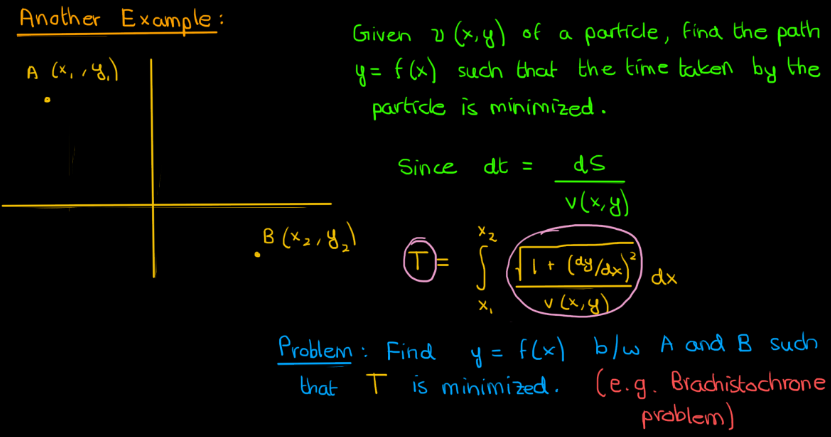 Another Example:
A (x₁, y₁)
B (x₂, y₂)
Given v(x,y) of a particle, find the path
y = f(x) such that the time taken by the
particle is minimized.
Since dt = dS / v(x,y)
T = ∫_{x₁}^{x₂} √(1 + (dy/dx)²) / v(x,y) dx
Problem: Find y = f(x) b/w A and B such
that T is minimized. (e.g. Brachistochrone
problem)